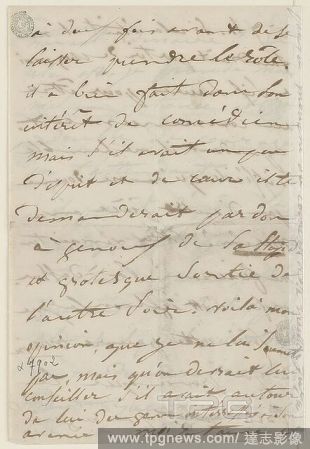 à deux fois avant de se
laisser prendre le rôle,
il a bien fait dans son
intérêt de comédien
mais s'il avait un peu
d'esprit et de cœur il te
demanderait pardon
à genoux de la
et grotesque sortie de
l'autre soir. voilà mon
opinion, que je ne lui
pas, mais qu'on devrait lui
conseiller s'il avait autour
de lui des gens
TPG
www.tpgnews.com/達志影像